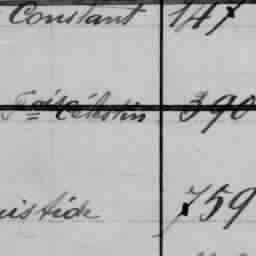 Constant 147
Fçois Célestin 390
uistide 759